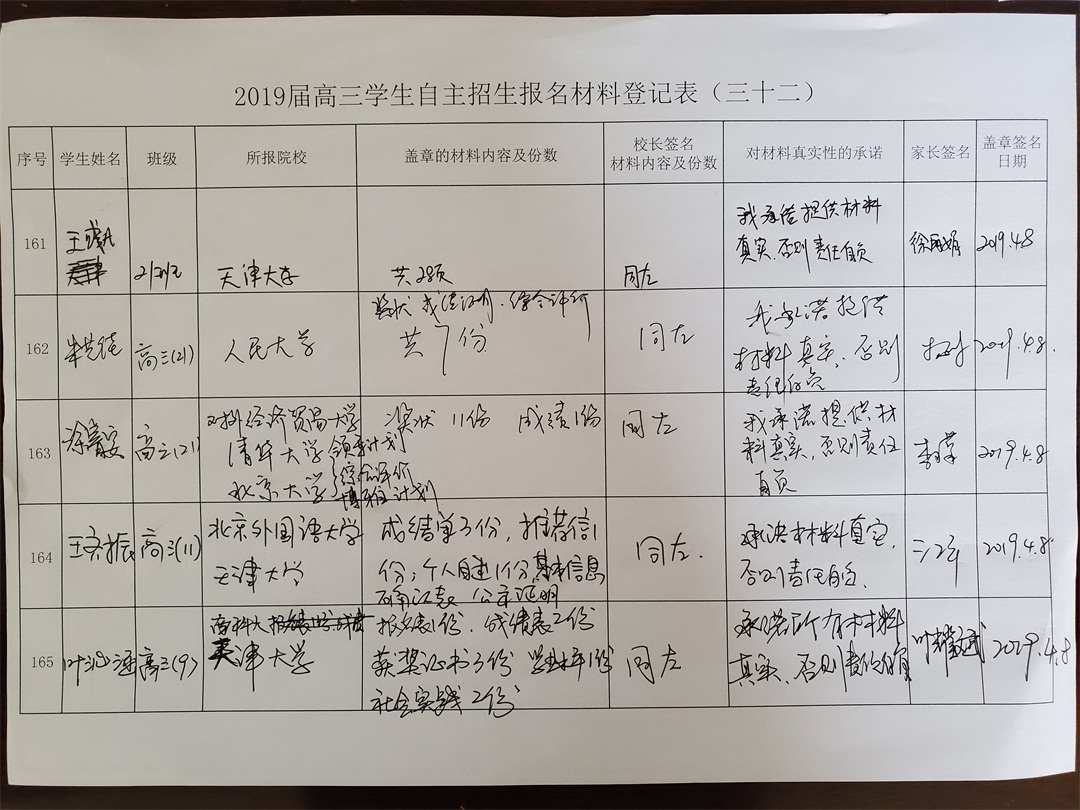 2019届高三学生自主招生报名材料登记表（三十二）
序号 学生姓名 班级 所报院校 盖章的材料内容及份数 校长签名 材料内容及份数 对材料真实性的承诺 家长签名 盖章签名 日期
161
天津大学 共28页 同左
我承诺提供材料
真实,否则责任自负
2019.4.8
162
高三(21) 人民大学
奖状
共7份
同左
我承诺提供
材料真实,否则
责任自负
2019.4.8.
163
高三(21)
对外经济贸易大学
清华大学 领军计划
综合评价
北京大学 博雅计划
奖状 11份 成绩1份
同左
我承诺提供材
料真实,否则责任
自负
2019.4.8
164
高三(11)
北京外国语大学
天津大学
成绩单3份,推荐信1
份,个人自述1份,基本信息
同左.
材料真实,
否则责任自负.
2019.4.8
165
高三(9)
天津大学
报名表1份.成绩表2份
获奖证书3份
社会实践2份
同左
承诺所有材料
真实,否则责任自负
叶耀武
2029.4.8